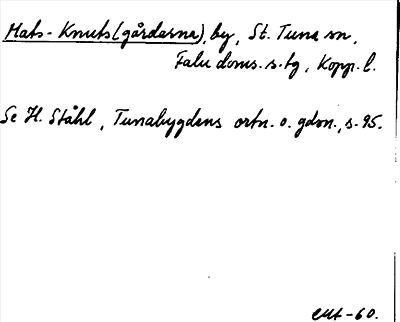 Mats-Knuts(gårdarna), by, St. Tuna sn,
Falu doms. s. tg, Kopp. l.
Se H. Ståhl, Tunabygdens ortn. o. gdsn., s. 95.
-60.